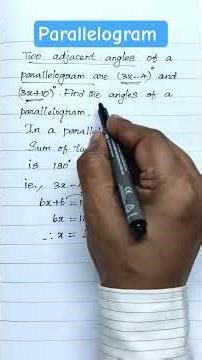 Parallelogram
Two adjacent angles of a
parallelogram are (3x-4)° and
(3x+10)°. Find the angles of a
parallelogram.
In a paral
Sum of t
is 180°
ie., 3x-
6x+6 =1
6x = 1
∴ x =